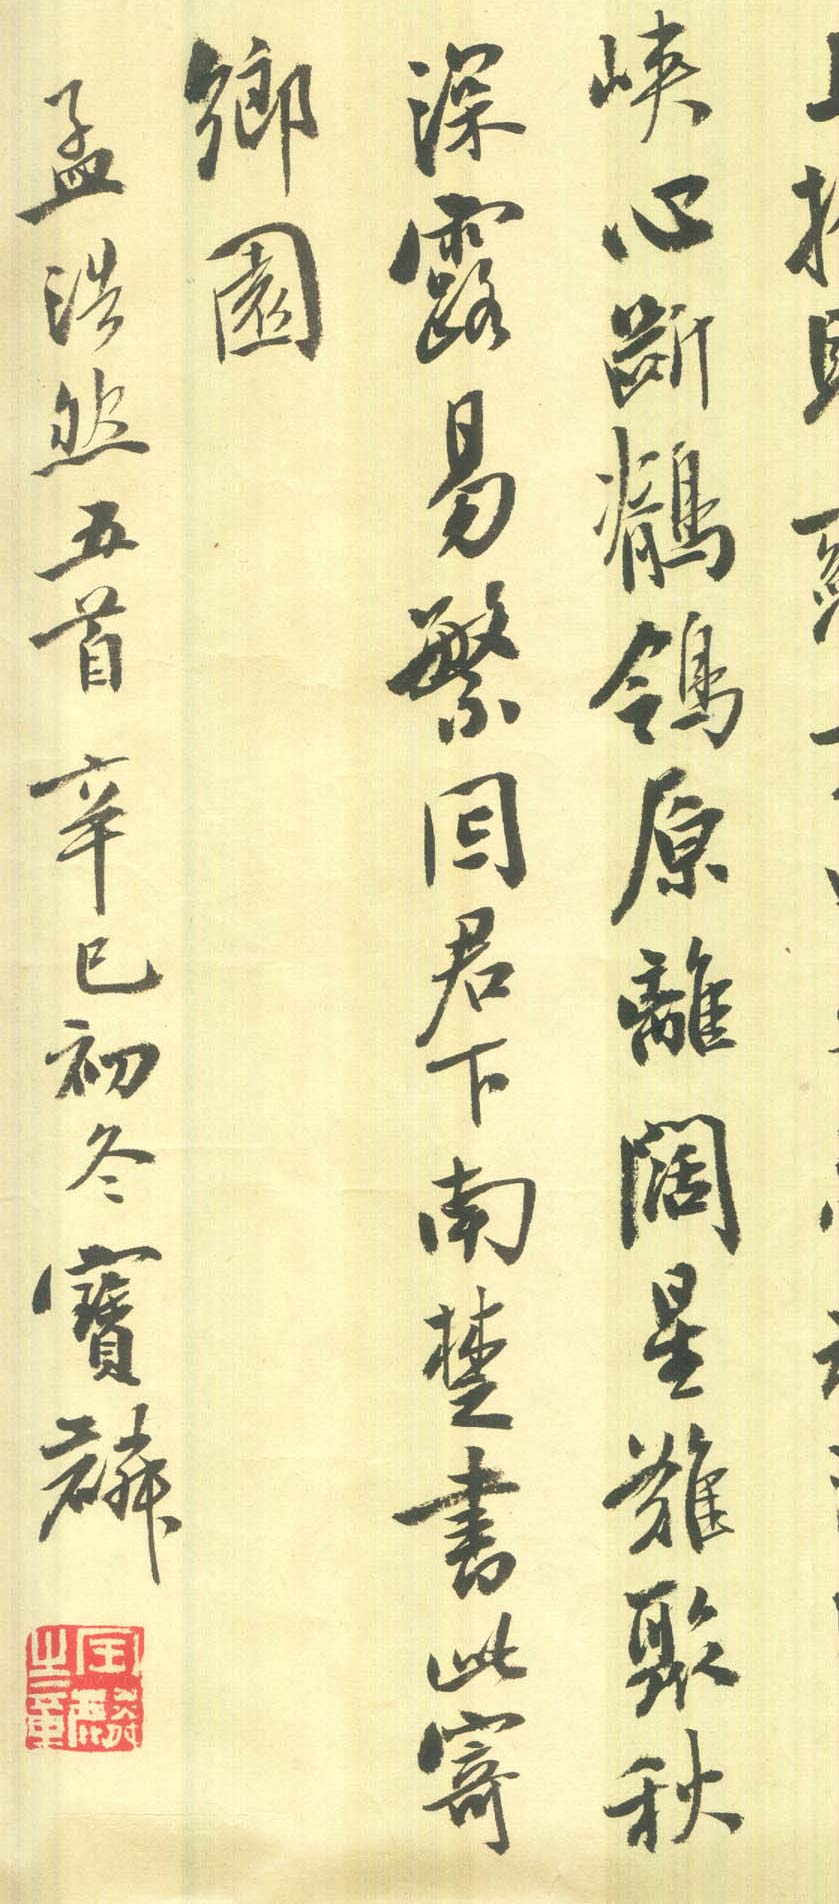 峽心斷鶺鴒原離闊星難聚秋
深露易繁因君下南楚書此寄
鄉園
孟浩然五首 辛巳初冬寶麟